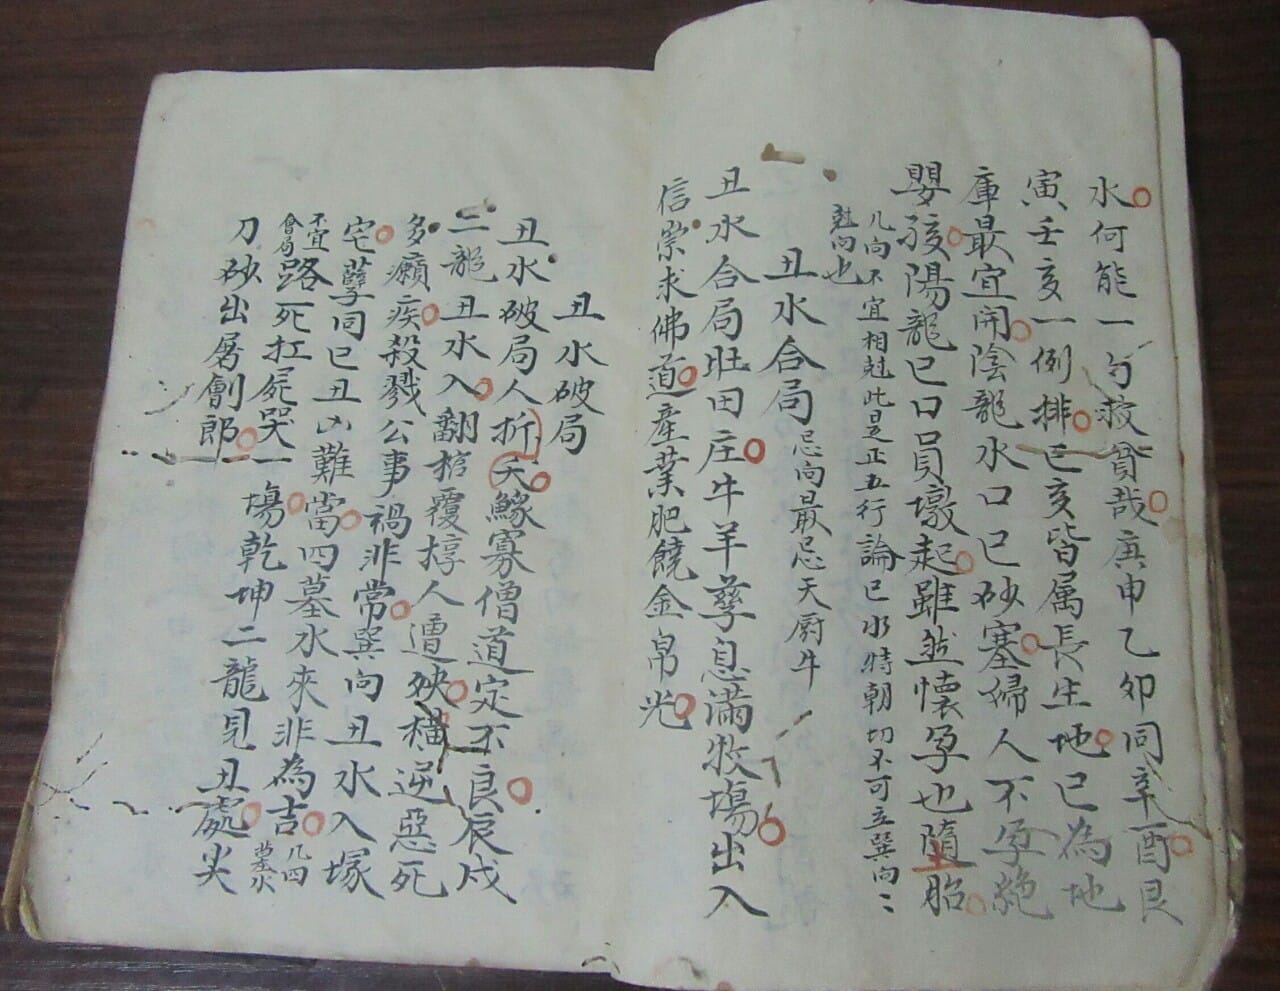 水何能一勺救貧哉庚申乙卯同辛酉艮
寅壬亥一例排巳亥皆属長生地巳為地
庫最宜開陰龍水口巳砂塞婦人不孕絶
嬰孩陽龍巳口員墩起雖然懐孕也隨胎
凡向不宜相尅此是正五行論巳水特朝切不可立巽向二
尅向也
丑水合局 忌向最忌天厨牛
丑水合局旺田庄牛羊孳息滿牧場出入
信崇求佛道產業肥饒金帛光
丑水破局
丑水破局人折夭鰥寡僧道定不良辰戌
二龍丑水入翻棺覆椁人遭殃橫逆惡死
多癩疾殺戮公事禍非常巽向丑水入塚
宅孽同巳丑凶難當四墓水來非為吉 凡四墓水
不宜會局 路死扛屍哭一場乾坤二龍見丑處尖
刀砂出屠劊郎